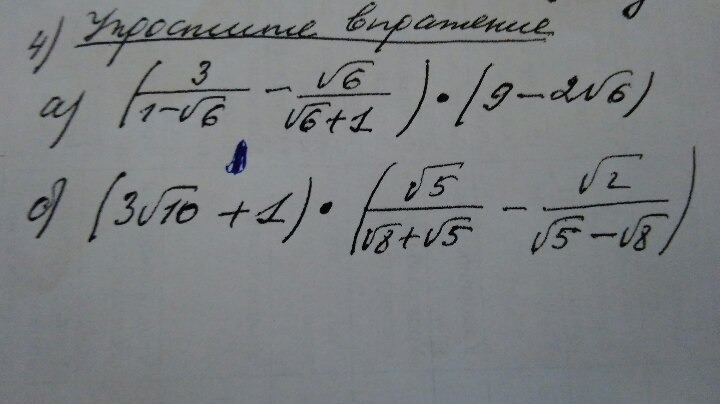 4) Упростите выражение
а) (3/(1-√6) - √6/(√6+1)) • (9-2√6)
б) (3√10 + 1) • (√5/(√8+√5) - √2/(√5-√8))